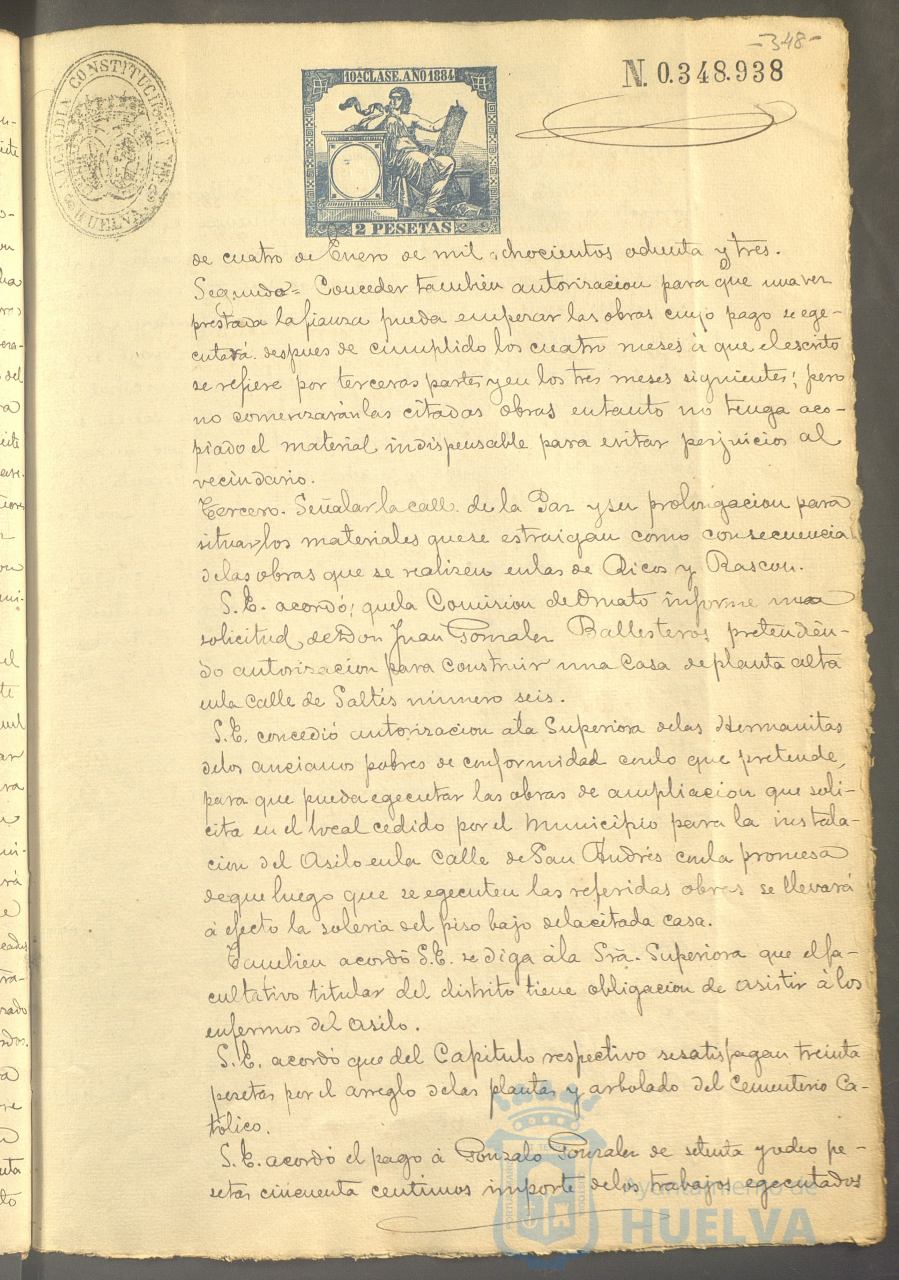 -348-
ALCALDIA CONSTITUCIONAL
HUELVA
10ª CLASE. AÑO 1884
N. 0.348.938
2 PESETAS
de cuatro de Enero de mil ochocientos ochenta y tres.
Segundo= Conceder tambien autorizacion para que una vez
prestada la fianza pueda empezar las obras cuyo pago se ege-
cutará despues de cumplido los cuatro meses á que el escrito
se refiere por terceras partes y en los tres meses siguientes; pero
no comenzarán las citadas obras entanto no tenga aco-
piado el material indispensable para evitar perjuicios al
vecindario.
Tercero. Señalar la calle de la Paz y su prolongacion para
situar los materiales que se estraigan como consecuencia
de las obras que se realizen en las de Ricos y Rascon.
S. E. acordó; que la Comision de Ornato informe una
solicitud de Don Juan Gonzalez Ballesteros pretendien-
do autorizacion para construir una casa de planta alta
en la calle de Saltés número seis.
S. E. concedió autorizacion á la Superiora de las Hermanitas
de los ancianos pobres de conformidad con lo que pretende,
para que pueda egecutar las obras de ampliacion que soli-
cita en el local cedido por el Municipio para la instala-
cion del Asilo en la calle de San Andrés con la promesa
de que luego que se egecuten las referidas obras se llevará
á efecto la soleria del piso bajo de la citada casa.
Tambien acordó S. E. se diga á la Srª. Superiora que el fa-
cultativo titular del distrito tiene obligacion de asistir á los
enfermos del asilo.
S. E. acordó que del Capitulo respectivo se satisfagan treinta
pesetas por el arreglo de las plantas y arbolado del Cementerio Ca-
tólico.
S. E. acordó el pago á Gonzalo Gonzalez de setenta y ocho pe-
setas cincuenta centimos importe de los trabajos egecutados
Ayuntamiento de
HUELVA